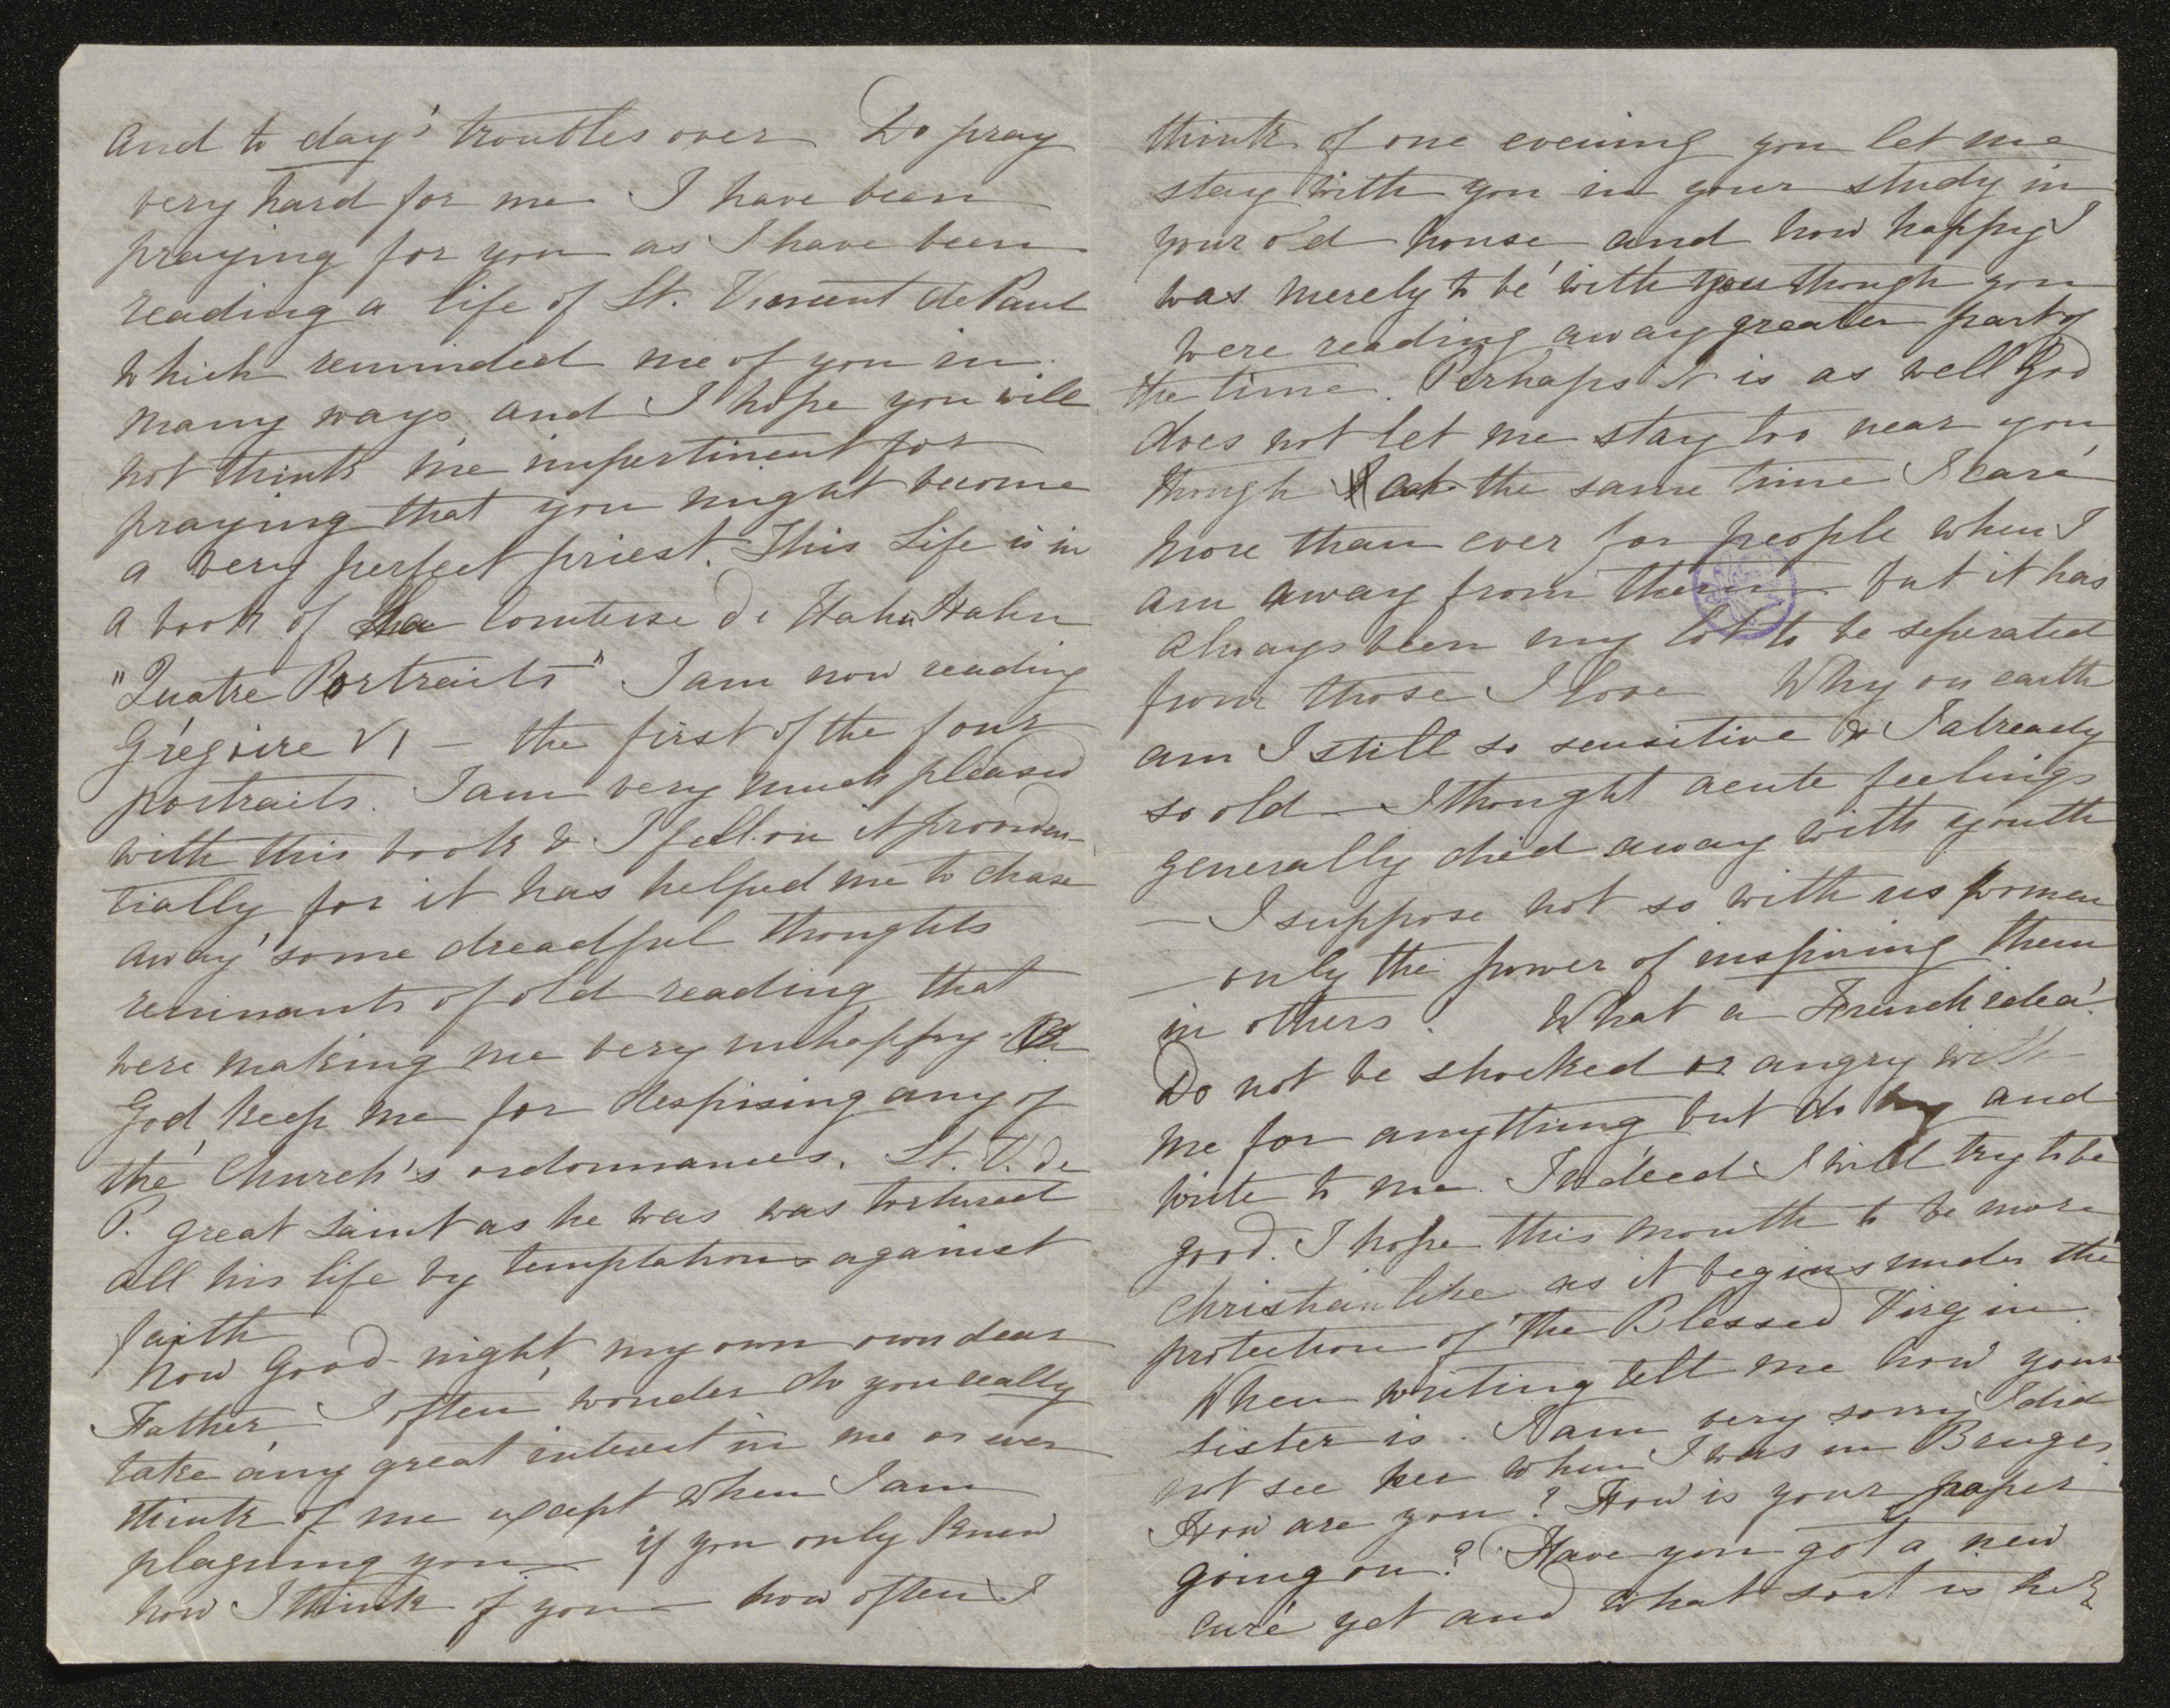 and to day's troubles over Do pray
very hard for me I have been
praying for you as I have been
reading a life of St. Vincent de Paul
which reminded me of you in
many ways and I hope you will
not think me impertinent for
praying that you might become
a very perfect priest. This Life is in
a book of la Comtesse de Hahn Hahn
"Quatre Portraits" I am now reading
Grégoire VI — the first of the four
portraits. I am very much pleased
with this book & I fell on it providen-
tially for it has helped me to chase
away some dreadful thoughts
remnants of old reading that
were making me very unhappy. Oh
God keep me for despising any of
the Church's ordonnances. St. V. de
P. great Saint as he was was tortured
all his life by temptations against
faith
Now good night my own own dear
Father I often wonder do you really
take any great interest in me or ever
think of me except when I am
plaguing you — if you only knew
how I think of you — how often I
think of one evening you let me
stay with you in your study in
your old house and how happy I
was merely to be with you though you
were reading away greater part of
the time. Perhaps it is as well God
does not let me stay too near you
though at the same time I care
more than ever for people when I
am away from them — but it has
always been my lot to be seperated
from those I love Why on earth
am I still so sensitive & I already
so old — I thought acute feelings
generally died away with youth
— I suppose not so with us women
— only the power of inspiring them
in others. What a French idea!
Do not be shocked or angry with
me for anything but do and
write to me. Indeed I will try to be
good. I hope this month to be more
Christianlike as it begins under the
protection of the Blessed Virgin.
When writing tell me how your
sister is. I am very sorry I did
not see her when I was in Bruges
How are you? How is your paper
going on? Have you got a new
curé yet and what sort is he?